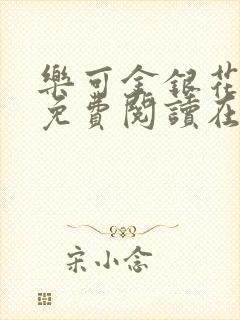 樂可金銀花
免費閱讀在
宋小念